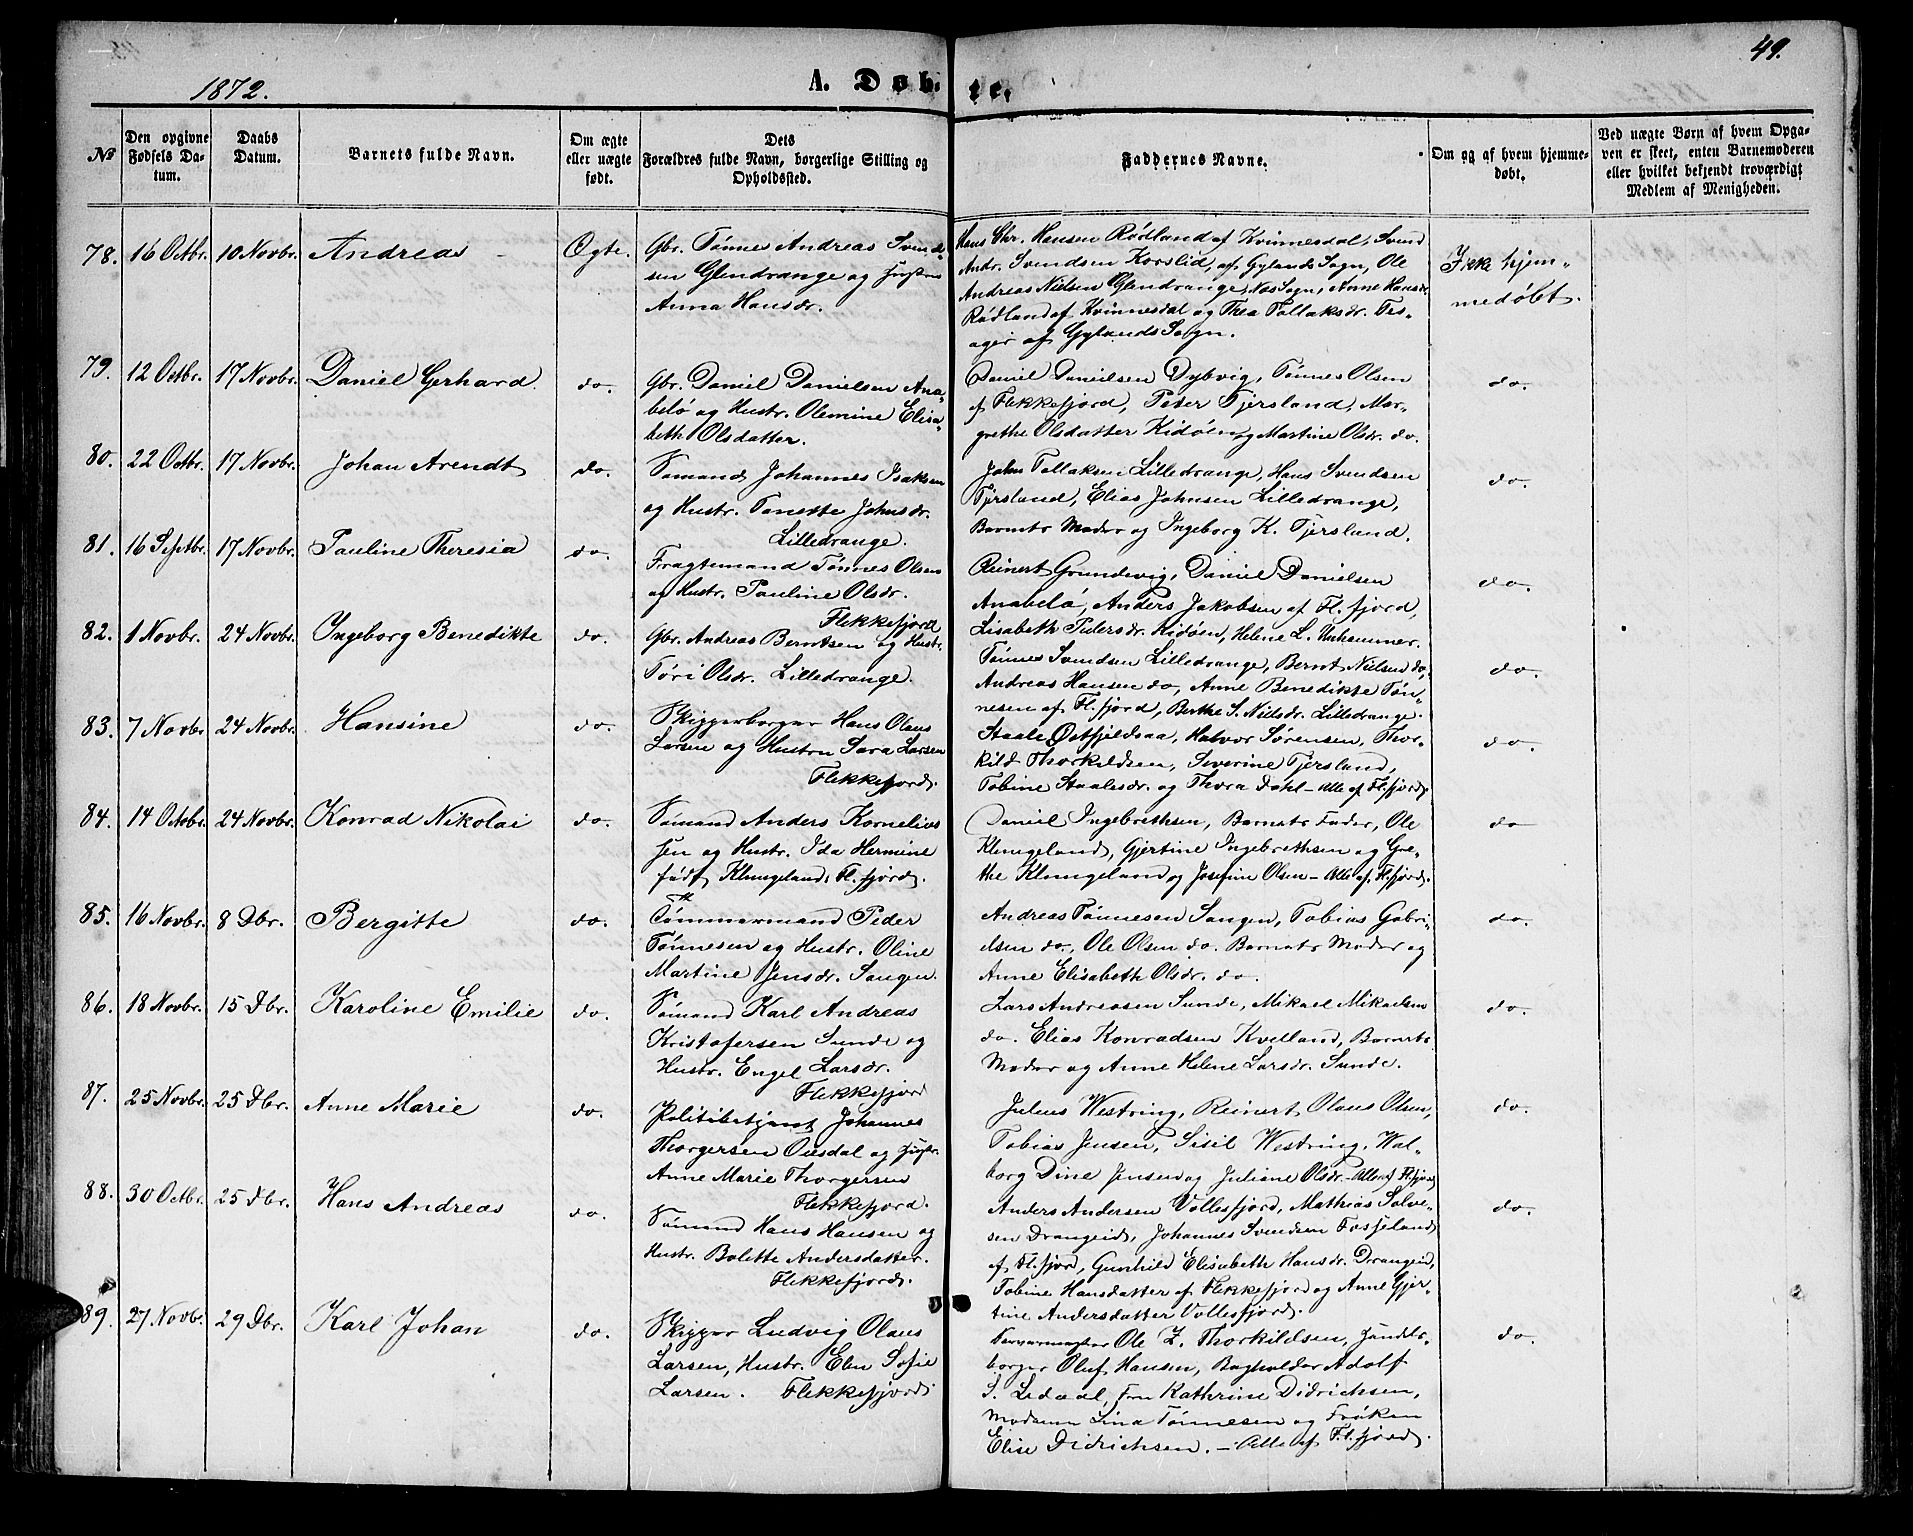 49.
1872.
A. Døb-
te.
№
Den opgivne Fødsels Da-
tum.
Daabs Datum.
Barnets fulde Navn.
Om ægte eller uægte født.
Dets
Forældres fulde Navn, borgerlige Stilling og Opholdssted.
Faddernes Navne.
Om og af hvem hjemme-
døbt.
Ved uægte Børn af hvem Opga-
ven er skeet, enten Barnemoderen
eller hvilket bekjendt troværdigt
Medlem af Menigheden.
78. 16 Octbr. 10 Novbr. Andreas Ægte.
Gbr. Tønnes Andreas Svend-
sen Glendrange og Hustru
Anna Hansdr.
Hans Chr. Hansen Rødland af Kvinnesdal, Svend
Andr. Svendsen Korslid, af Gylands Sogn, Ole
Andreas Nielsen Glendrange, Næs Sogn, Anne Hansdr.
Rødland af Kvinnesdal og Thea Tollaksdr. Tes-
ager af Gylands Sogn.
Ikke hjem-
medøbt.
79. 12 Octbr. 17 Novbr. Daniel Gerhard. do.
Gbr. Daniel Danielsen Ana-
belø og Hustr. Olemine Elisa-
beth Olsdatter.
Daniel Danielsen Dybvig, Tønnes Olsen
af Flekkefjord, Peter Tjersland, Mar-
grethe Olsdatter Kidøen og Martine Olsdr. do.
do.
80. 22 Octbr. 17 Novbr. Johan Arendt do.
Sømand Johannes Isaksen
og Hustr. Tonette Johnsdr.
Lilledrange.
John Tollaksen Lilledrange, Hans Svendsen
Tjersland, Elias Johnsen Lilledrange,
Barnets Moder og Ingeborg K. Tjersland.
do.
81. 16 Septbr. 17 Novbr. Pauline Theresia do.
Fragtemand Tønnes Olsen
og Hustr. Pauline Olsdr.
Flekkefjord
Reinert Grundevig, Daniel Danielsen
Anabelø, Anders Jakobsen af Fl.fjord,
Lisabeth Pedersdr. Kidøen, Helene L. Urhammer.
do.
82. 1 Novbr. 24 Novbr. Ingeborg Benedikte do.
Gbr. Andreas Berntsen og Hustr.
Tøri Olsdr. Lilledrange.
Tønnes Svendsen Lilledrange, Bernt Nielsen do,
Andreas Hansen do, Anne Benedikte Tøn-
nesen af Fl.fjord, Berthe S. Nilsdr. Lilledrange.
do.
83. 7 Novbr 24 Novbr. Hansine do.
Skipperborger Hans Olaus
Larsen og Hustru Sara Larsen
Flekkefjord.
Staale Østfjeldsaa, Halvor Sørensen, Thor-
kild Thorkildsen, Severine Tjersland,
Tobine Staalesdr. og Thora Dahl - Alle af Fl.fjord.
do.
84. 14 Octbr. 24 Novbr. Konrad Nikolai do.
Sømand Anders Kornelius
sen og Hustr. Ida Hermine
født Klungeland, Fl.fjord.
Daniel Ingebrethsen, Barnets Fader, Ole
Klungeland, Gjertine Ingebrethsen og Gre-
the Klungeland og Josefine Olsen - Alle af Fl.fjord.
do
85. 16 Novbr. 8 Dbr. Bergitte do.
Tømmermand Peder
Tønnesen og Hustr. Oline
Martine Jensdr. Sangen.
Andreas Tønnesen Sangen, Tobias Gabri-
elsen do. Ole Olsen do. Barnets Moder og
Anne Elisabeth Olsdr. do.
do.
86. 18 Novbr. 15 Dbr. Karoline Emilie do.
Sømand Karl Andreas
Kristofersen Sunde og
Hustr. Engel Larsdr.
Flekkefjord
Lars Andreasen Sunde, Mikael Mikaelsen
do. Elias Konradsen Kvelland, Barnets
Moder og Anne Helene Larsdr. Sunde.
do.
87. 25 Novbr. 25 Dbr. Anne Marie do.
Politibetjent Johannes
Thorgersen Ousdal og Hustr.
Anne Marie Thorgersen
Flekkefjord.
Julius Westring, Reinert Olaus Olsen,
Tobias Jensen, Sisil Westring, Wal-
borg Dine Jensen og Juliane Olsdr. - Alle af Fl.fjord
do.
88. 30 Octbr. 25 Dbr. Hans Andreas do.
Sømand Hans Hansen og
Hustr. Bolette Andersdatter.
Flekkefjord.
Anders Andersen Vollesfjord, Mathias Salve-
sen Drangeid, Johannes Svendsen Fosseland
af Fl.fjord, Gunhild Elisabeth Hansdr. Drangeid,
Tobine Hansdatter af Flekkefjord og Anne Gjer-
tine Andersdatter Vollesfjord.
do.
89. 27 Novbr. 29 Dbr. Karl Johan do.
Skipper Ludvig Olaus
Larsen, Hustr. Elen Sofie
Larsen. Flekkefjord
Ole Z. Thorkildsen, Handels-
borger Oluf Hansen, Bogholder Adolf
S. Ledaal, Fru Kathrine Didrichsen,
Madame Lina Tønnesen og Frøken
Elise Didrichsen. - Alle af Fl.fjord.
do.